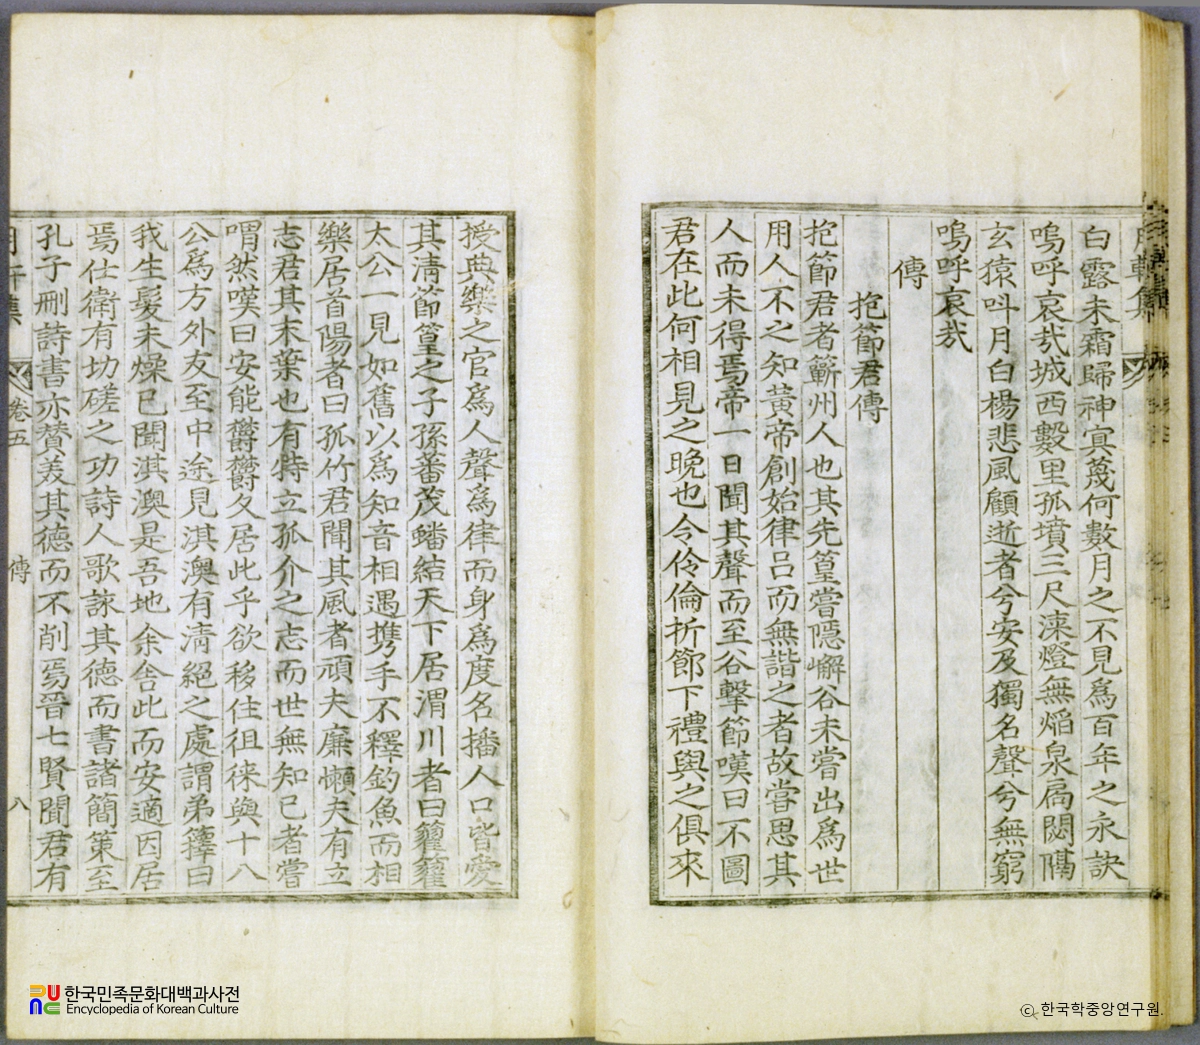 白露未霜歸神寘篾何數月之不見爲百年之永訣
嗚呼哀哉城西數里孤墳三尺涷燈無焰泉扃閟隔
玄猿呌月白楊悲風顧逝者兮安及獨名聲兮無窮
嗚呼哀哉
傳
抱節君傳
抱節君者蘄州人也其先篁嘗隱嶰谷未嘗出爲世
用人不之知黃帝創始律呂而無諧之者故嘗思其
人而未得焉帝一日聞其聲而至谷擊節嘆曰不圖
君在此何相見之晚也令伶倫折節下禮與之俱來
授典樂之官爲人聲爲律而身爲度名播人口皆愛
其淸節篁之子孫蕃茂蟠結天下居渭川者曰籊籊
太公一見如舊以爲知音相遇携手不釋釣魚而相
樂居首陽者曰孤竹君聞其風者頑夫廉懶夫有立
志君其末葉也有特立孤介之志而世無知己者嘗
喟然嘆曰安能欝欝久居此乎欲移住徂徠與十八
公爲方外友至中途見淇澳有淸絕之處謂弟籜曰
我生髮未燥已聞淇澳是吾地余舍此而安適因居
焉仕衛有切磋之功詩人歌詠其德而書諸簡策至
孔子刪詩書亦贊美其德而不削焉晉七賢聞君有
月軒集 卷五 傳 八
한국민족문화대백과사전
Encyclopedia of Korean Culture
ⓒ 한국학중앙연구원.